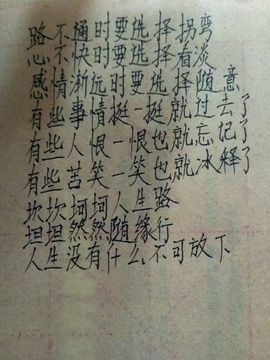 路不通时要选择拐弯
心不快时要选择看淡
感情渐远时要选择随意
有些事情挺一挺就过去了
有些人恨一恨也就忘记了
有些苦笑一笑也就冰释了
坎坎坷坷人生路
坦坦然然随缘行
人生没有什么不可放下